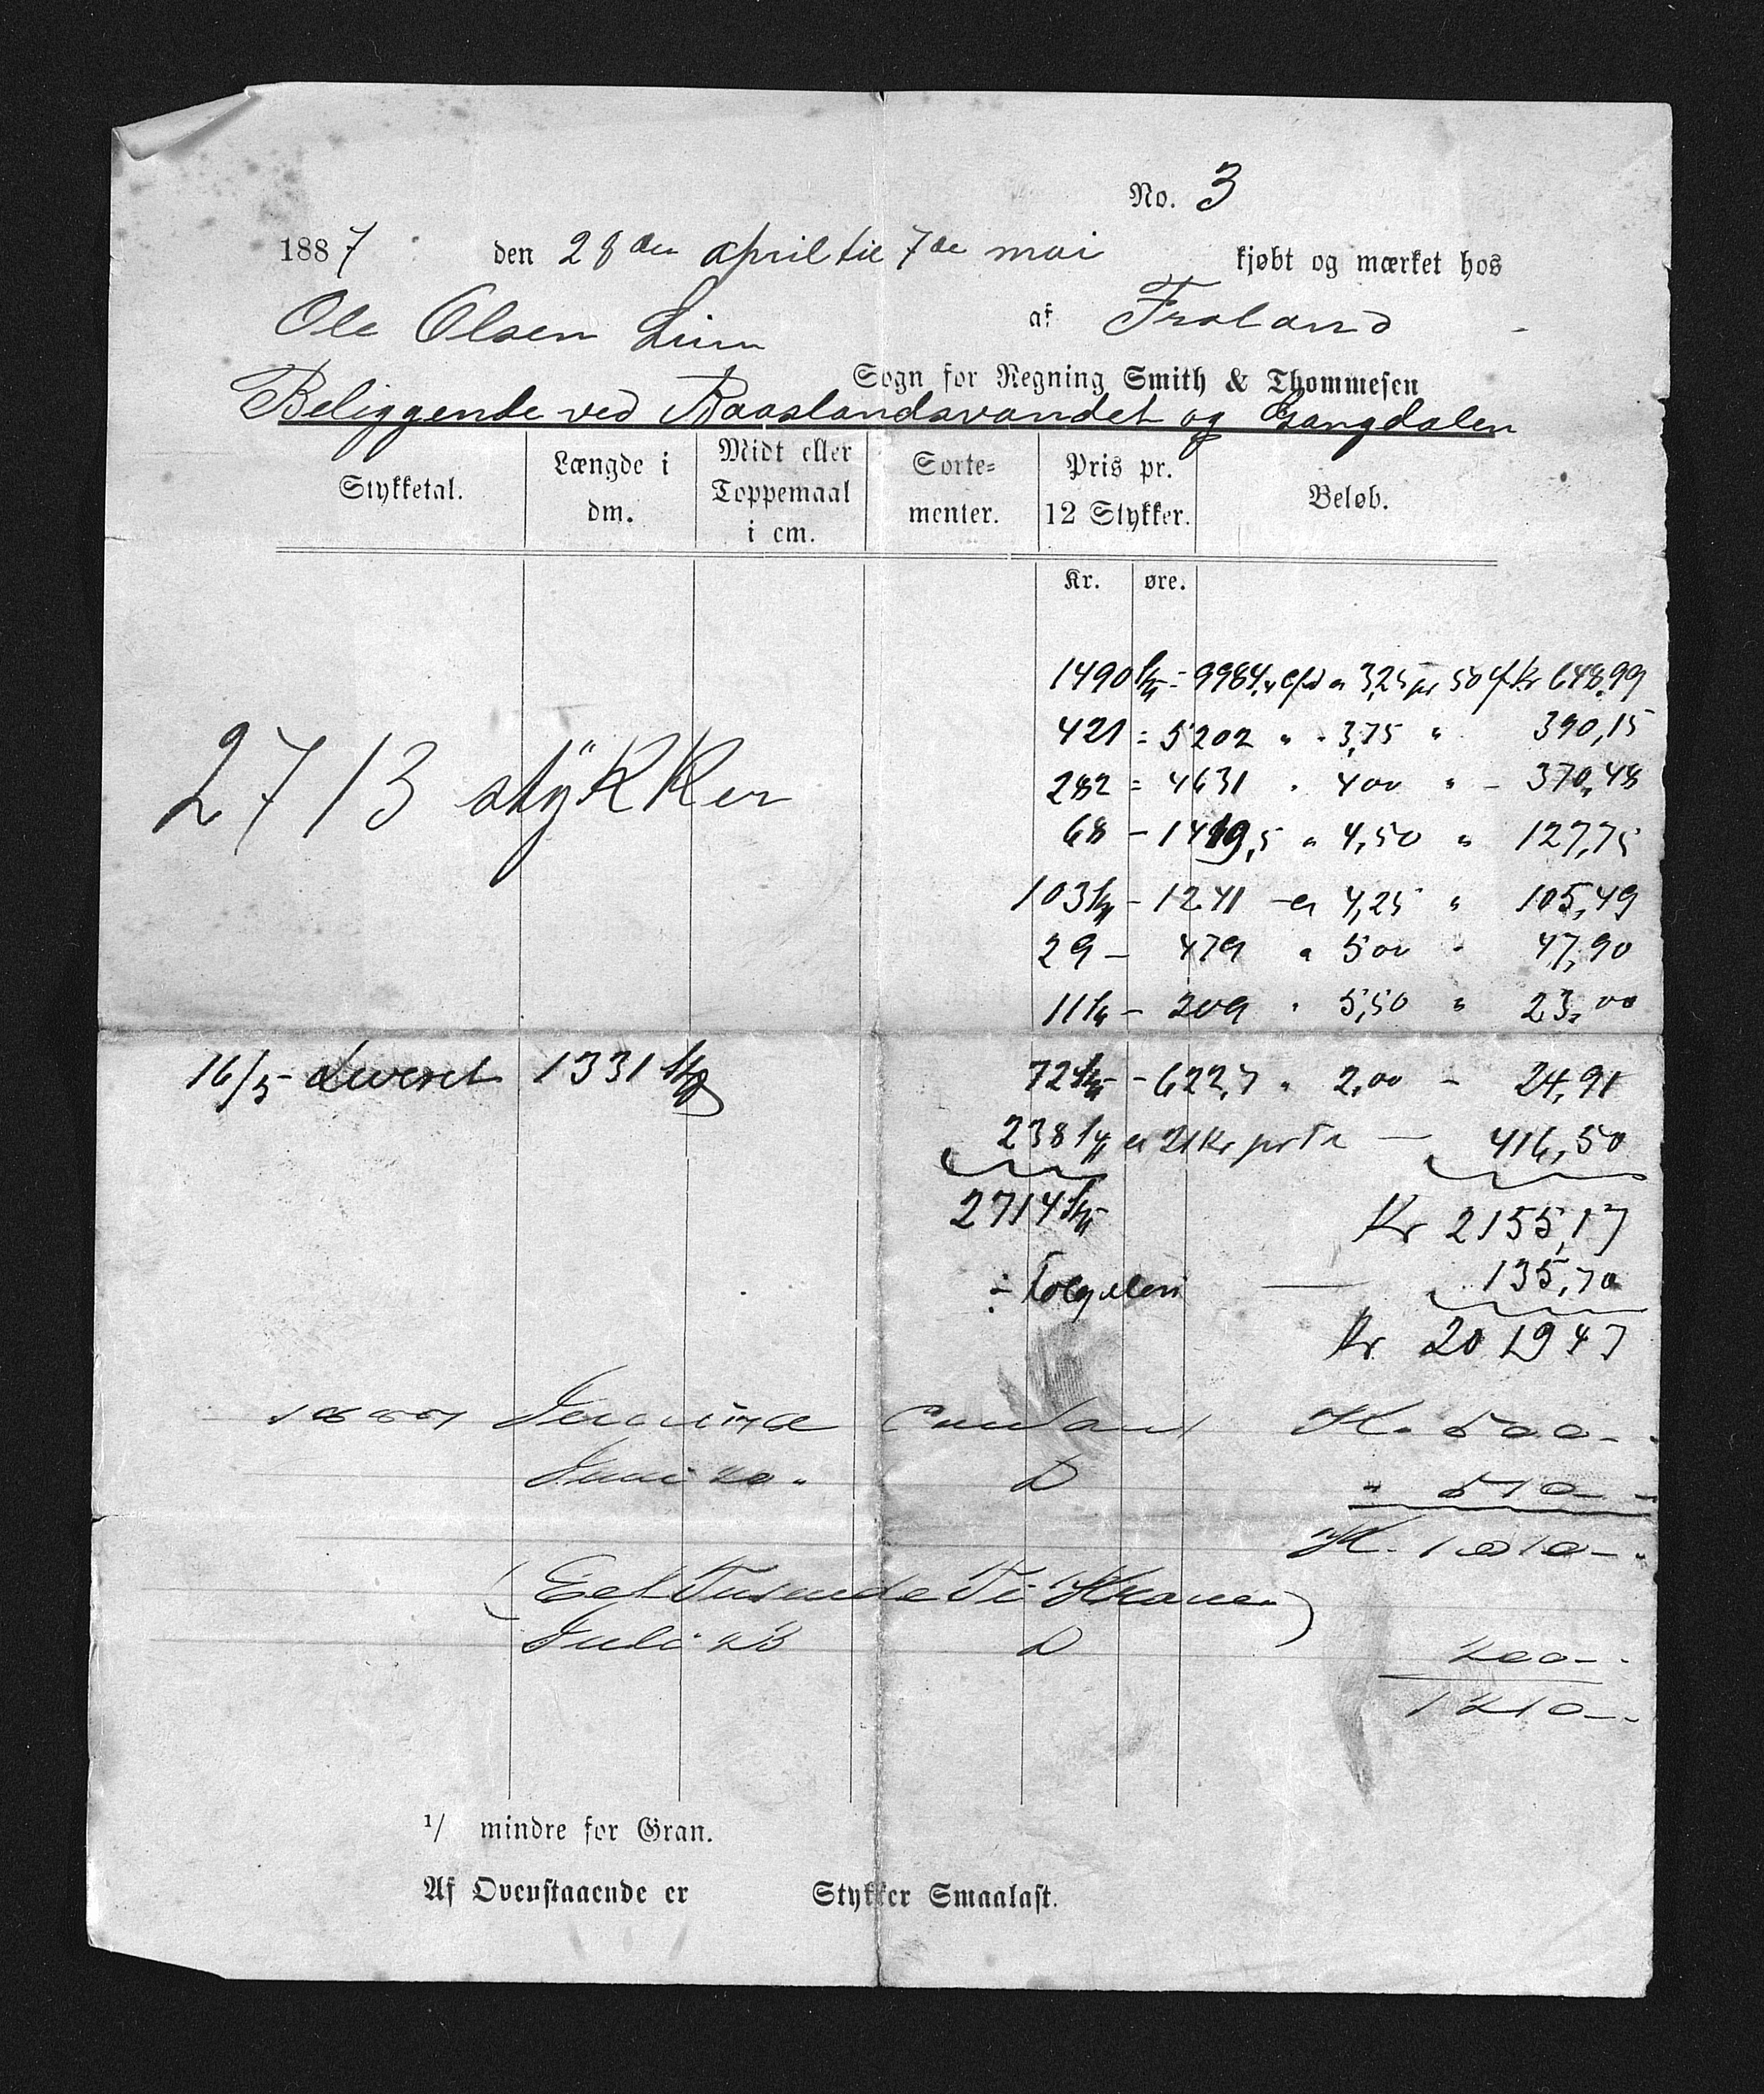 No. 3
1887 den 28den april til 7de mai kjøbt og mærket hos
Ole Olsen Lien af Froland
Sogn for Regning Smith & Thommesen
Beliggende ved Raaslandsvandet og Gangdalen
Stykketal. Længde i dm. Midt eller Toppemaal i cm. Sorte=menter. Pris pr. 12 Stykker. Beløb.
Kr. øre.
1490 - 9984, a 3,25 pr 50 Kr 648,99
421 = 5202 " - 3,75 " 390,15
2713 stÿkker
282 = 4631 " 400 " - 370,48
68 - 1419,5 " 4,50 " 127,75
103 - 1241 - a 4,25 " 105,49
29 - 479 " 500 " 47,90
11 - 209 " 5,50 " 23,00
16/5 Leveret 1331
72 - 622,7 " 2,00 - 24,91
238 a 21 Kr pr — 416,50
2714 Kr 2155,17
÷ — 135,70
Kr 201947
1887 Contant K. 500-
Juni 20 D " 510-
K. 1010-
(Eet Tusende Ti Kroner)
Juli 23 D 200-
1210-
1/ mindre for Gran.
Af Ovenstaaende er Stykker Smaalast.